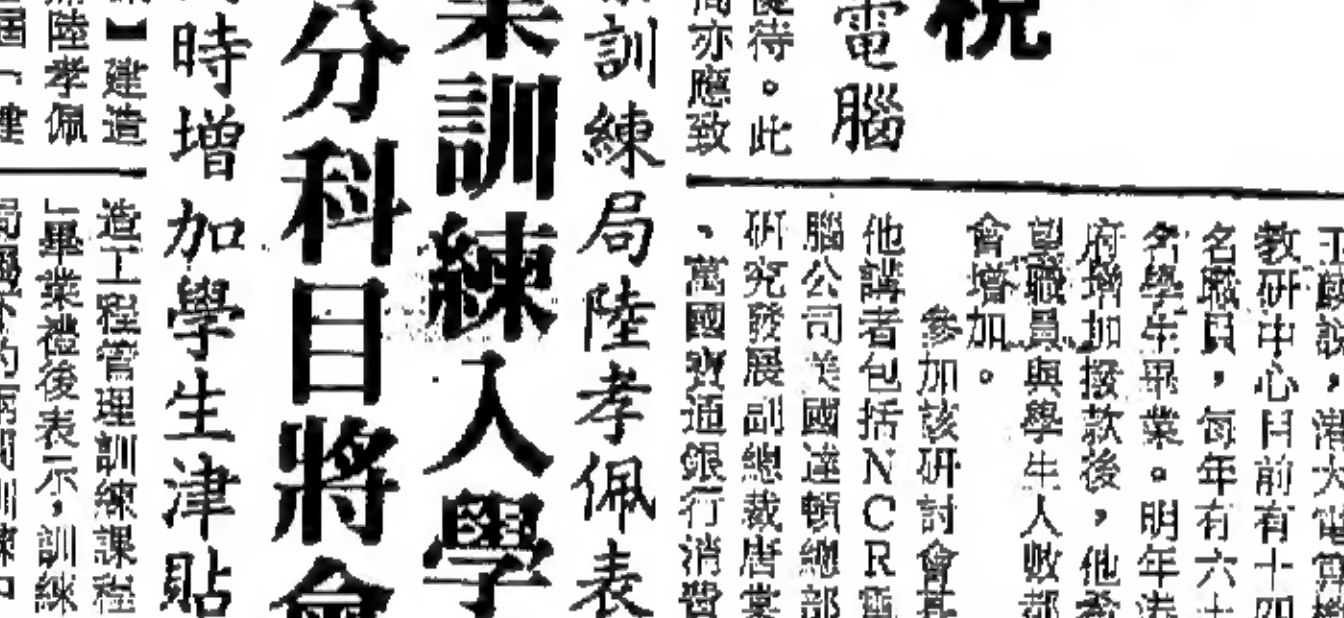 稅
電腦
優待。此
商亦應致
說，港大電算
教研中心目前有十四
名職員，每年有六十
名學生畢業。明年港
府增加撥款後，他希
望職員與學生人數都
會增加。
參加該研討會其
他講者包括NCR電
腦公司美國達頓總部
研究發展副總裁唐
、萬國寶通銀行消費
訓練局陸孝佩表
業訓練入學
分科目將會
時增加學生津貼
】建造
陸孝佩
屆「建
造工程管理訓練課程
」畢業禮後表示，訓練
局